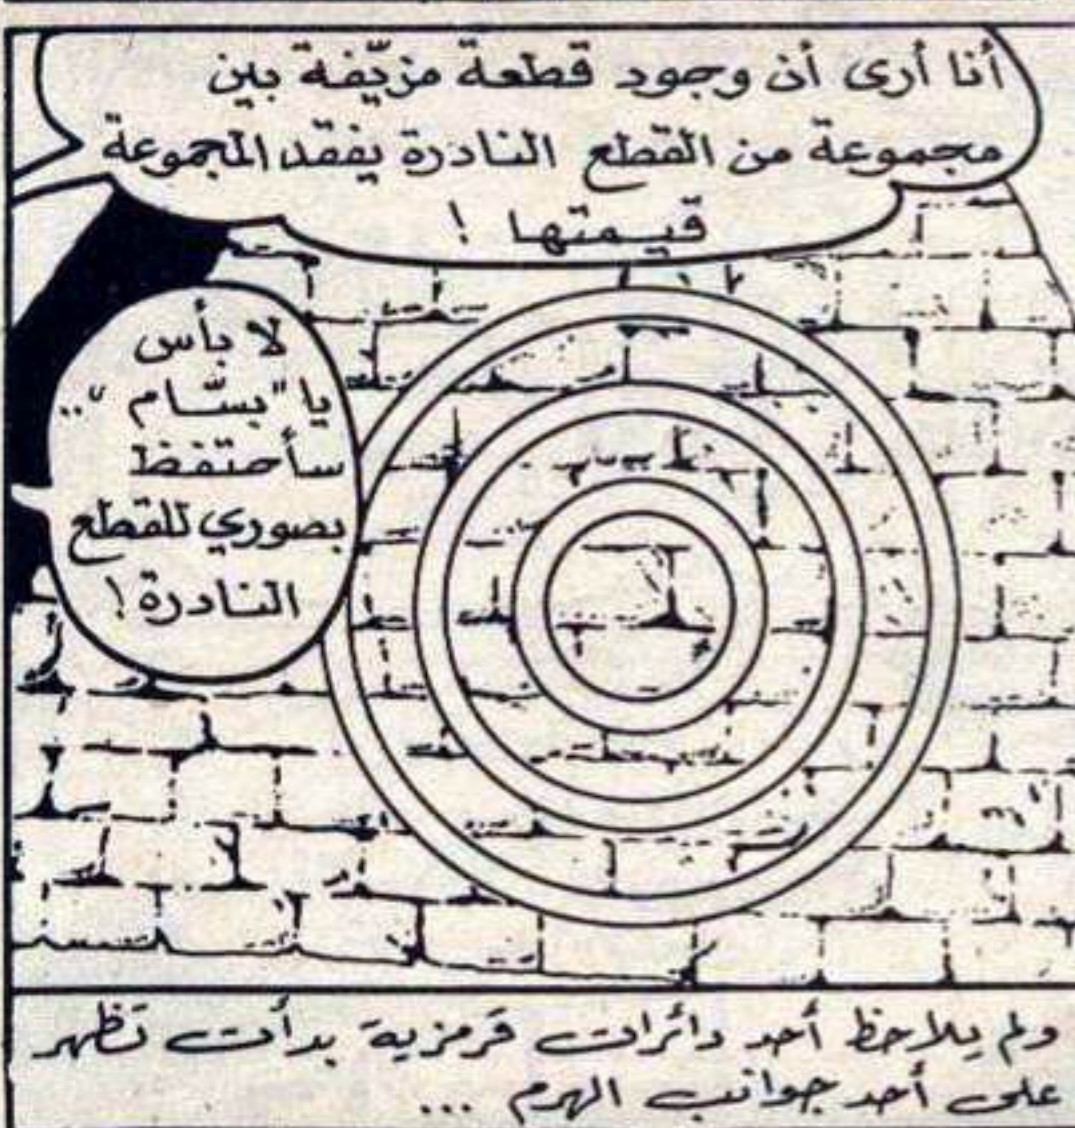 أنا أرى أن وجود قطعة مزيّفة بين
مجموعة من القطع النادرة يفقد المجموعة
قيمتها !
لا بأس
يا "بسّام"..
سأحتفظ
بصوري للقطع
النادرة !
ولم يلاحظ أحد دائرات قرمزية بدأت تظهر
على أحد جوانب الهرم ...